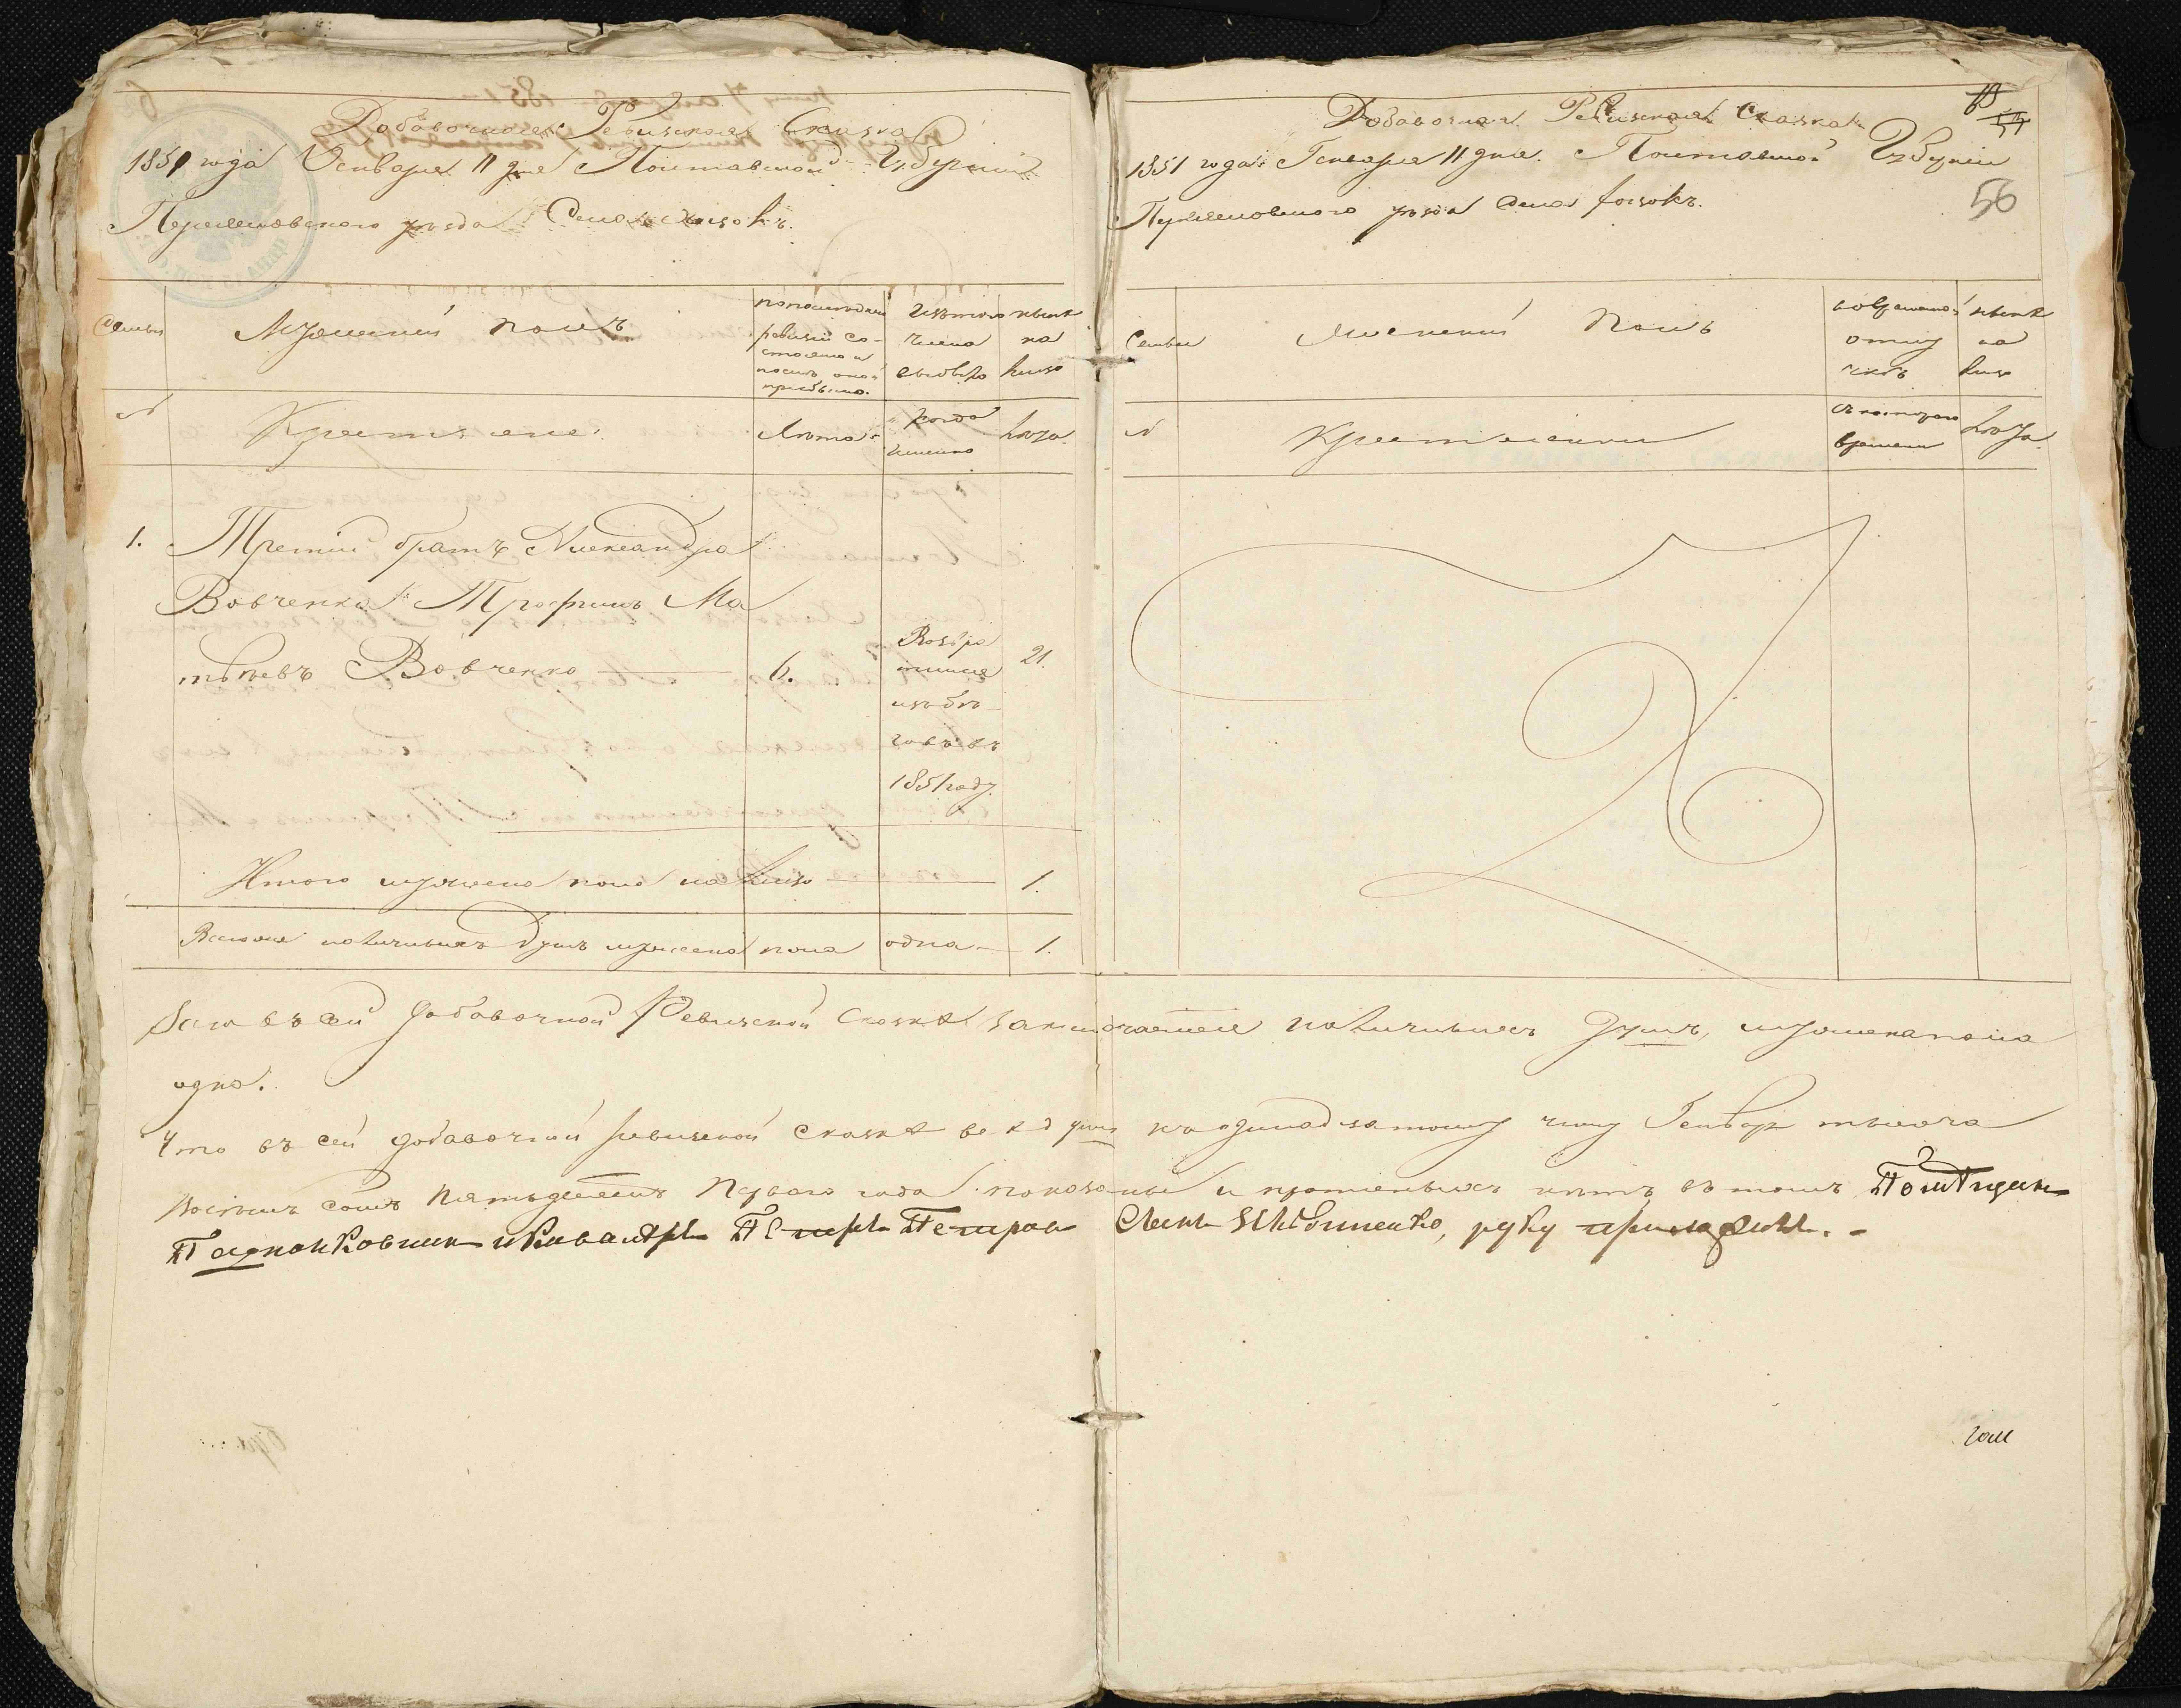 Добавочная Ревизская Сказка
1851 года Генваря 11 дня Полтавской Губерніи
Переяславского уѣзда Села
Семьи
Мужеский полъ
по последней ревизіи состояло и послѣ оной прибыло.
Изъ того числа выбыло
нынѣ на лицо
№
Крестьяне.
Лѣта
когда именно
Лѣта.
1.
Третий братъ Александра
Вовченка Трофимъ Ма
твѣевъ Вовченко
6.
Возвра
тился
изъ бѣ
говъ въ
1851 году.
21.
Итого мужеска пола на лицо 1.
Всего наличныхъ душъ мужеска пола одна 1.
Добавочная Ревизская Сказка
54
1851 года Генваря 11 дня. Полтавской Губерніи
56
Переяславского уѣзда Села
Семьи
Женский полъ
во временной отлучкѣ
нынѣ на лицо
№
Крестьянки
съ котораго времени
Лѣта.
Всего въ сей добавочной Ревизской Сказкѣ заключается наличныхъ душъ, мужеска пола
одна.
Что въ сей добавочной ревизской сказкѣ всѣ души къ одинадцатому числу Генваря тысяча
восемь сотъ пятьдесятъ перваго года показаны и прописныхъ нѣтъ въ томъ Помѣщик
Подполковник и Кавалеръ Петръ Петров Сынъ руку приложилъ.